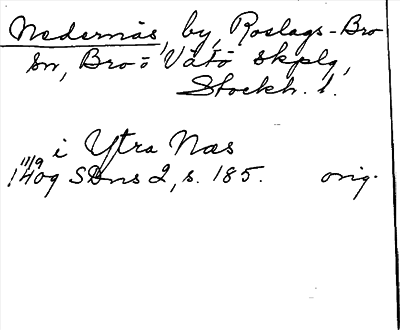 Nedernäs, by, Roslags-Bro
sn, Bro- o Vätö skplg,
Stockh. l.
i Ytra Næs
11/9
1409 SDns 2, s. 185. orig.